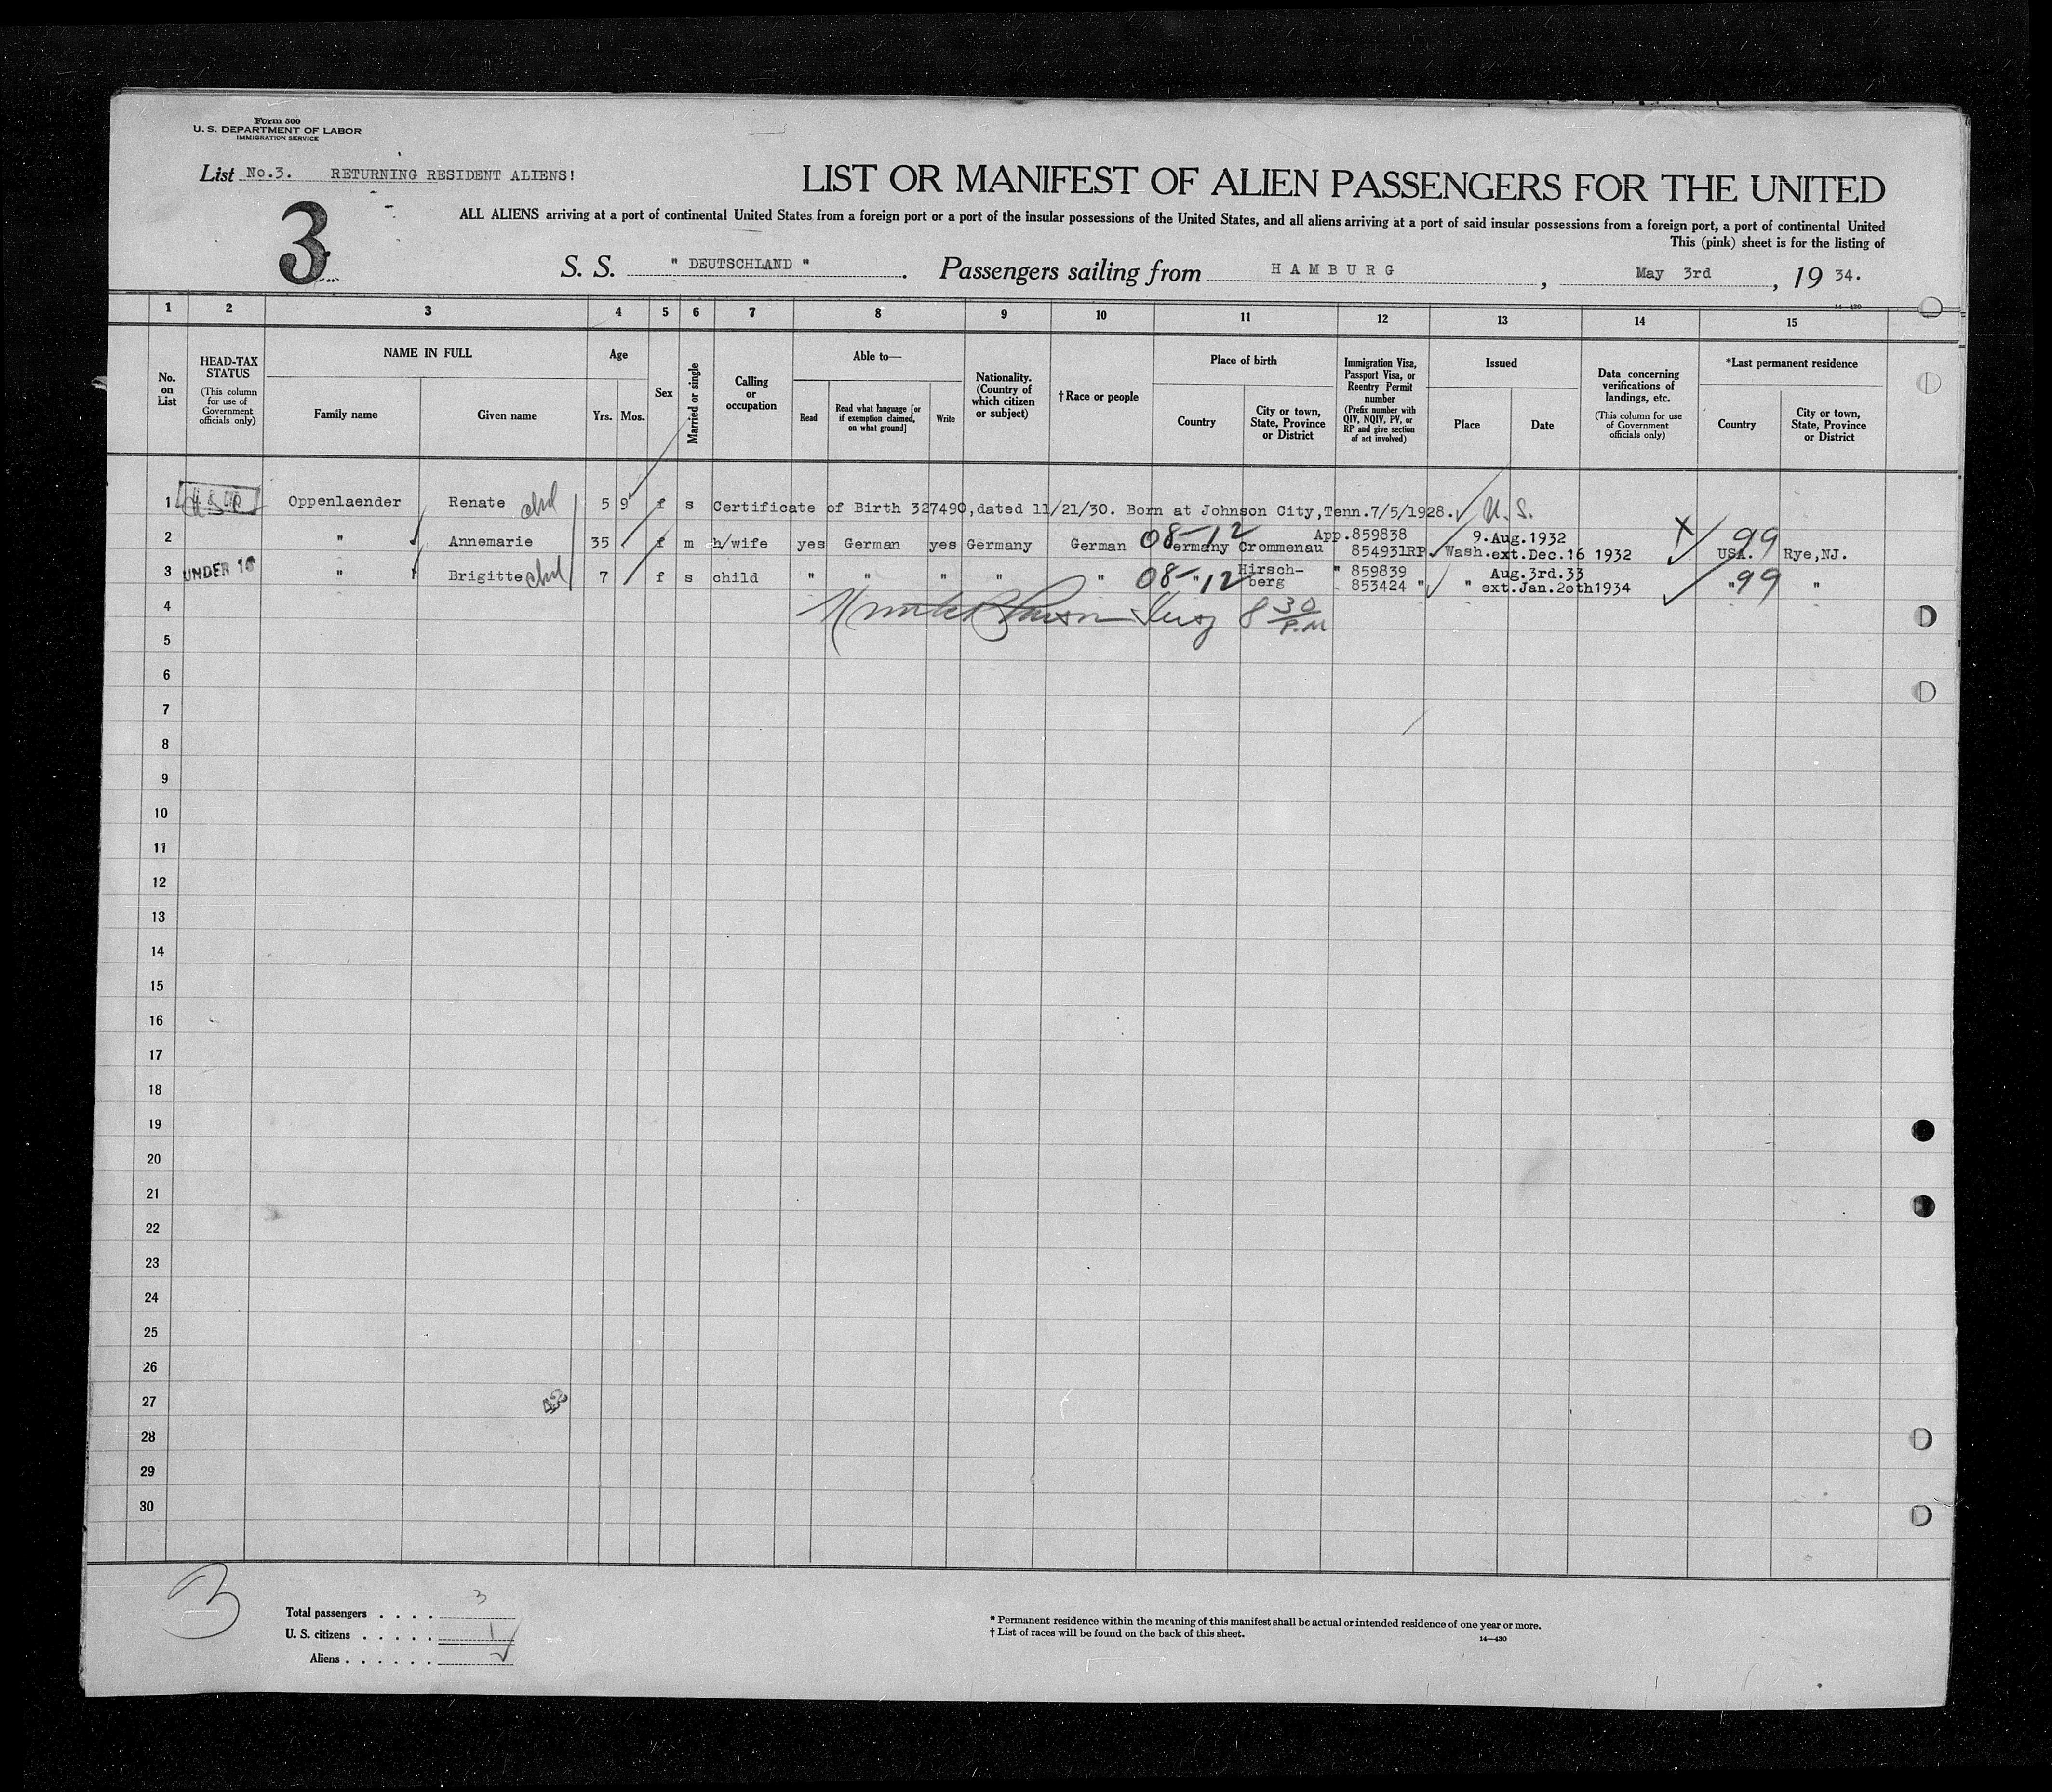 Form 500
U. S. DEPARTMENT OF LABOR
IMMIGRATION SERVICE
List No.3. RETURNING RESIDENT ALIENS!
3
LIST OR MANIFEST OF ALIEN PASSENGERS FOR THE UNITED
ALL ALIENS arriving at a port of continental United States from a foreign port or a port of the insular possessions of the United States, and all aliens arriving at a port of said insular possessions from a foreign port, a port of continental United
This (pink) sheet is for the listing of
S. S. " DEUTSCHLAND " . Passengers sailing from HAMBURG , May 3rd , 19 34.
14—430
1 2 3 4 5 6 7 8 9 10 11 12 13 14 15
No. on List
HEAD-TAX STATUS (This column for use of Government officials only)
NAME IN FULL
Family name
Given name
Age
Yrs. Mos.
Sex
Married or single
Calling or occupation
Able to—
Read
Read what language [or if exemption claimed, on what ground]
Write
Nationality. (Country of which citizen or subject)
† Race or people
Place of birth
Country
City or town, State, Province or District
Immigration Visa, Passport Visa, or Reentry Permit number (Prefix number with QIV, NQIV, PV, or RP and give section of act involved)
Issued
Place
Date
Data concerning verifications of landings, etc. (This column for use of Government officials only)
*Last permanent residence
Country
City or town, State, Province or District
1 Oppenlaender Renate 5 9 f s Certificate of Birth 327490,dated 11/21/30. Born at Johnson City,Tenn.7/5/1928. U.S.
2 " Annemarie 35 f m h/wife yes German yes Germany German 08-12 Germany Crommenau App.859838 854931RP Wash. 9.Aug.1932 ext.Dec.16 1932 X 99 USA. Rye,NJ.
3 UNDER 16 " Brigitte 7 f s child " " " " " 08-12 " Hirsch-berg " 859839 853424 " " Aug.3rd.33 ext.Jan.20th1934 99 " "
8 30 P.M
4
5
6
7
8
9
10
11
12
13
14
15
16
17
18
19
20
21
22
23
24
25
26
27
28
29
30
43
3
Total passengers . . . . 3
U. S. citizens . . . . . 1
Aliens . . . . . .
* Permanent residence within the meaning of this manifest shall be actual or intended residence of one year or more.
† List of races will be found on the back of this sheet.
14—430